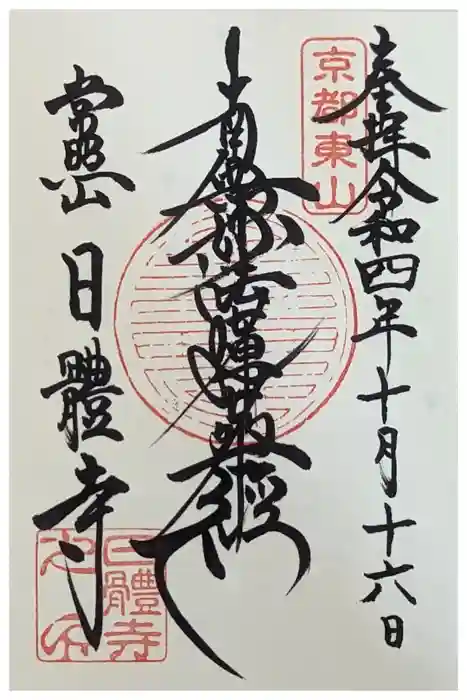 奉拝 令和四年十月十六日
京都東山
南無妙法蓮華経
常照山 日體寺
日體寺之印